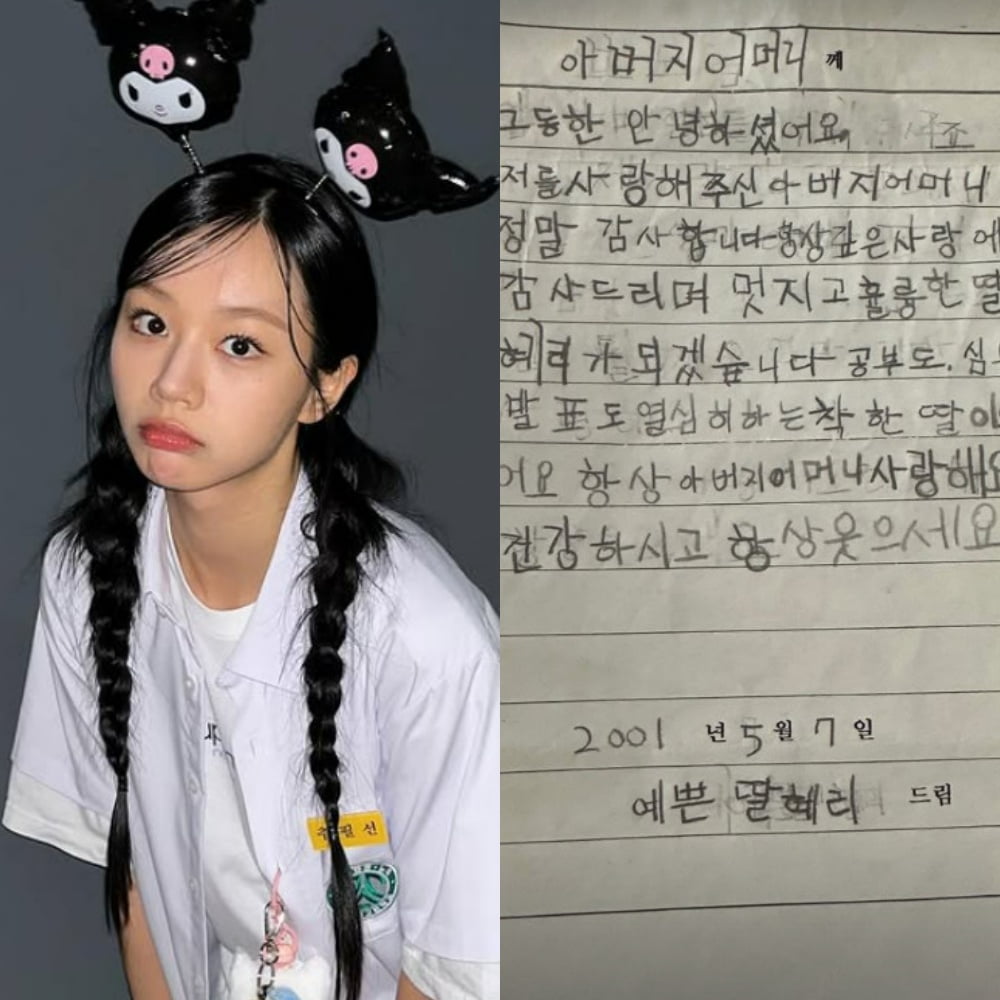 아버지어머니께
그동한 안녕하셨어요
저를사랑해주신아버지어머니
정말 감사합니다항상깊은사랑에
감사드리며 멋지고훌륭한딸
혜리가 되겠습니다 공부도.심
발표도열심히하는착한 딸이
어요 항상아버지어머니사랑해요
건강하시고 항상웃으세요
2001년 5월 7일
예쁜 딸혜리 드림
필선